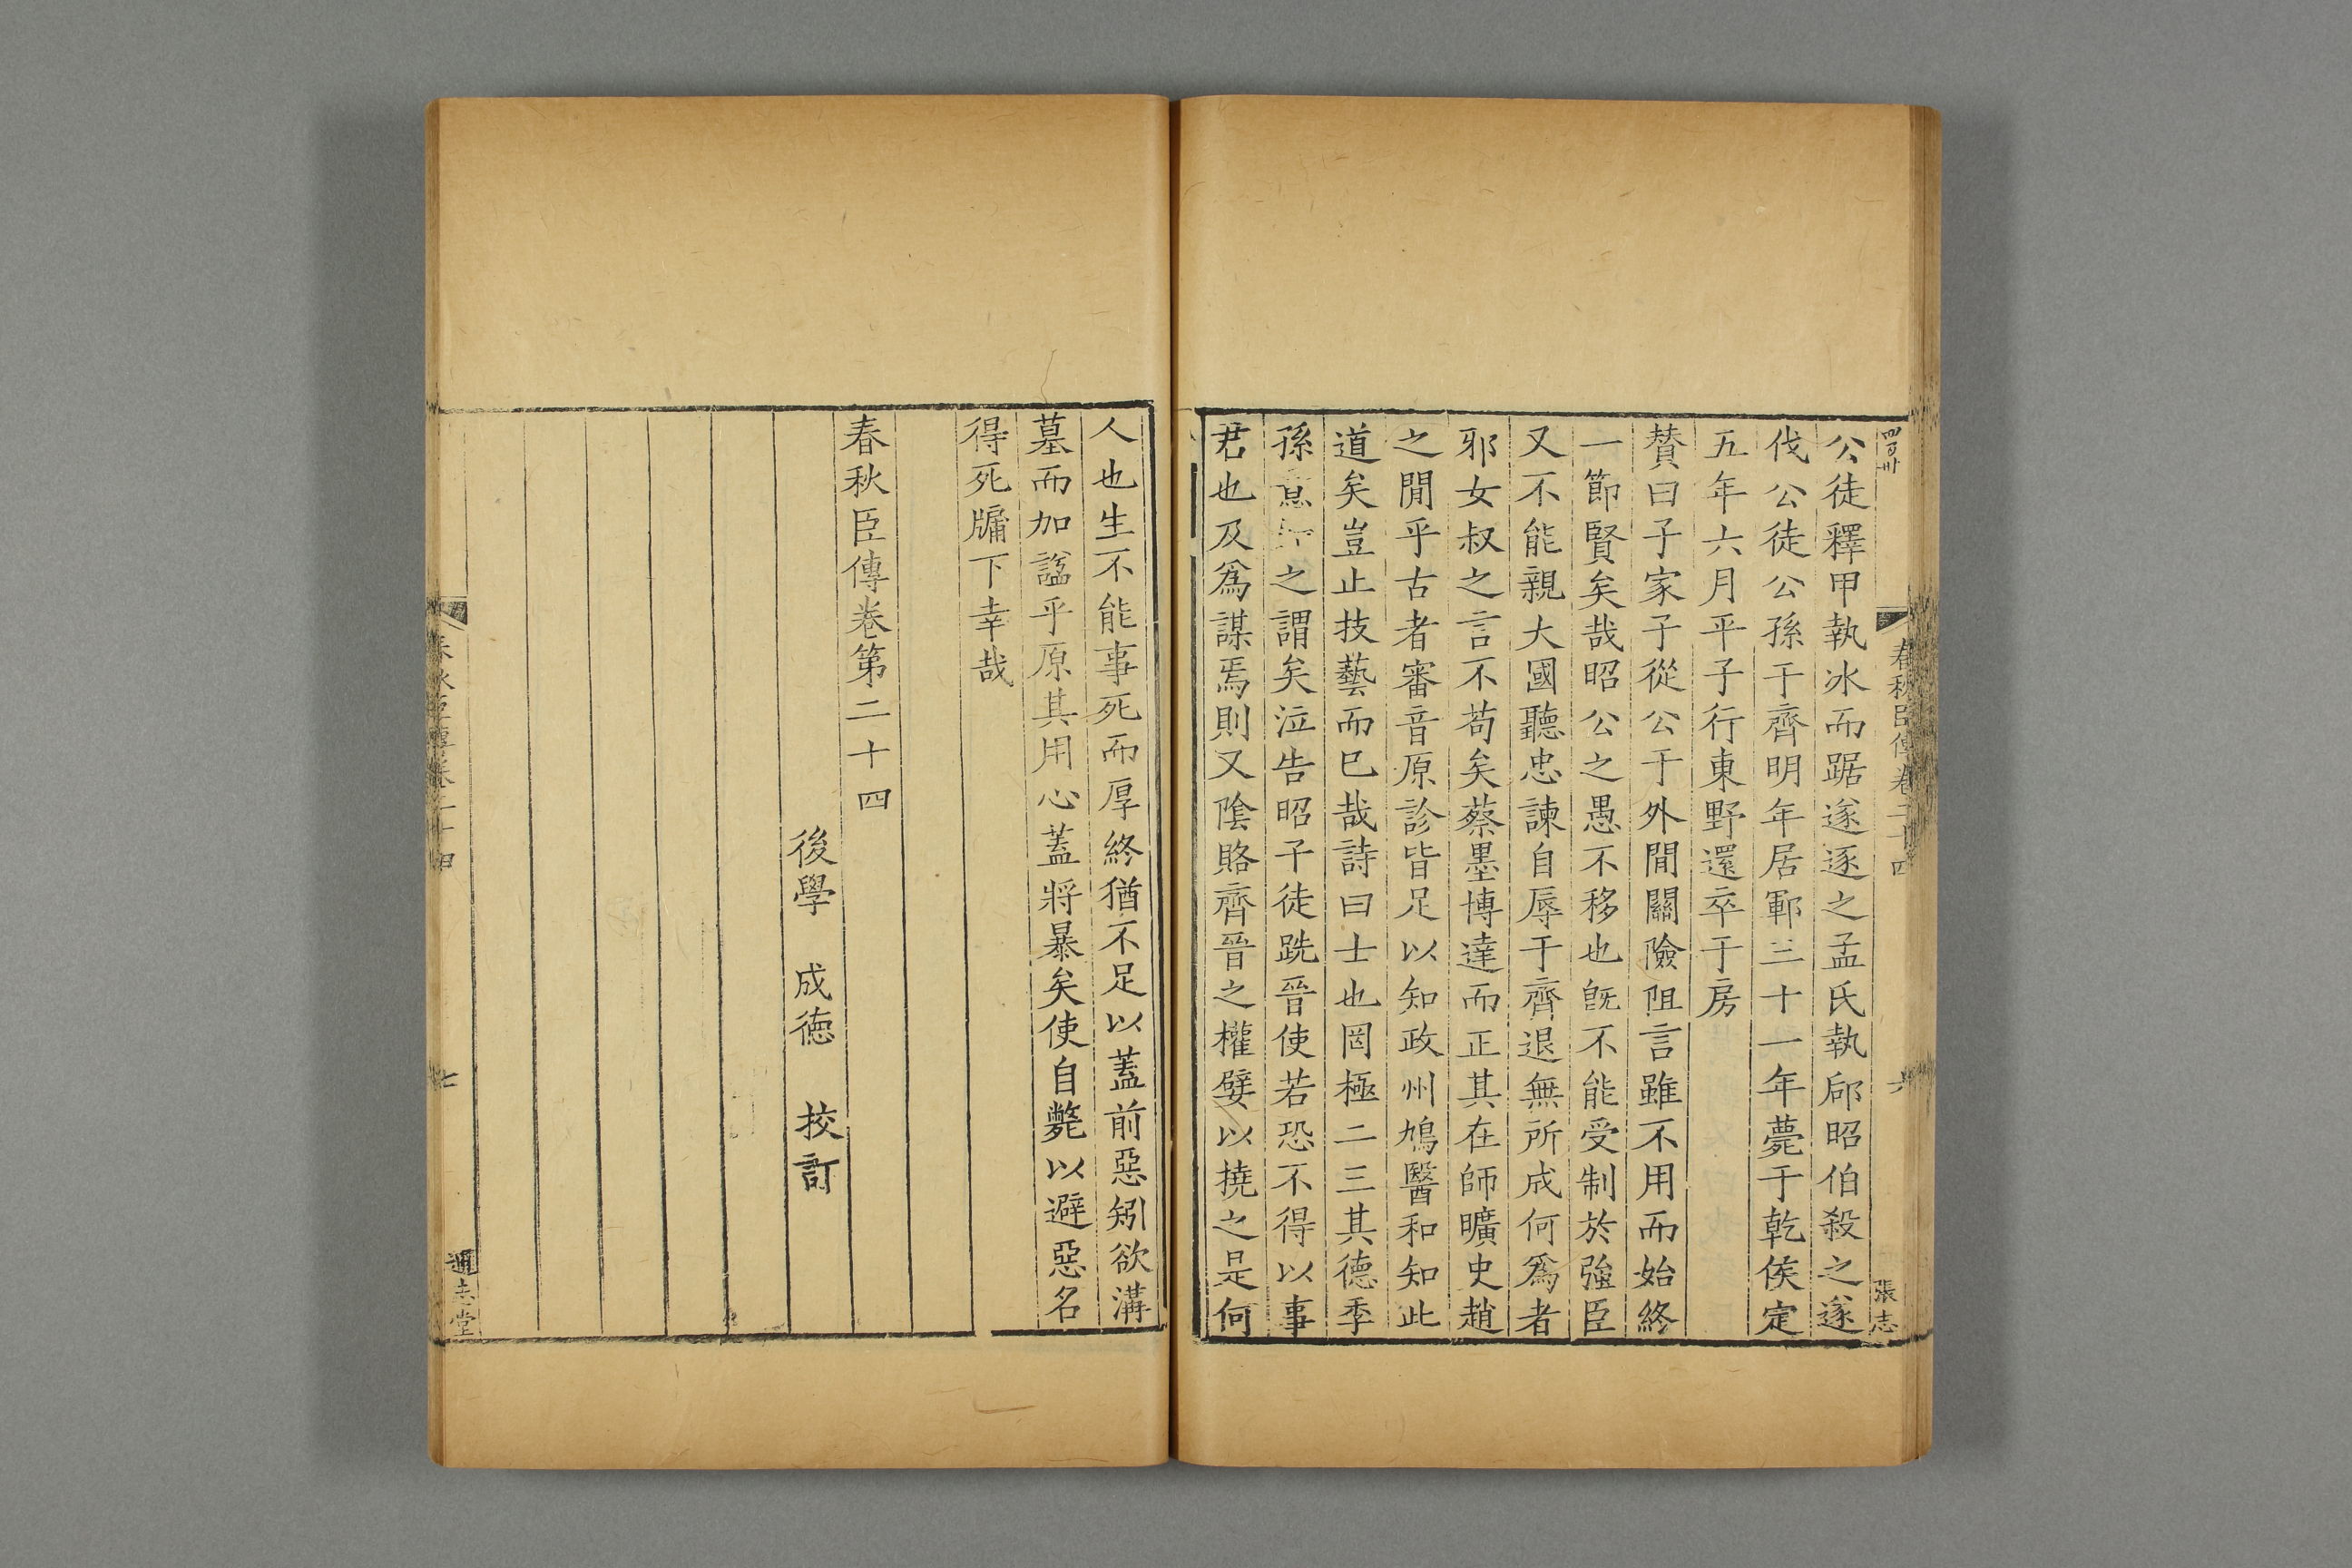 春秋臣傳卷二十四
六
張志
公徒釋甲執冰而踞遂逐之孟氏執郈昭伯殺之遂
伐公徒公孫于齊明年居鄆三十一年薨于乾侯定
五年六月平子行東野還卒于房
賛曰子家子從公于外閒關險阻言雖不用而始終
一節賢矣哉昭公之愚不移也旣不能受制於強臣
又不能親大國聽忠諫自辱于齊退無所成何爲者
邪女叔之言不苟矣蔡墨博達而正其在師曠史趙
之閒乎古者審音原診皆足以知政州鳩醫和知此
道矣豈止技藝而已哉詩曰士也罔極二三其德季
孫意如之謂矣泣告昭子徒跣晉使若恐不得以事
君也及爲謀焉則又陰賂齊晉之權嬖以撓之是何
人也生不能事死而厚終猶不足以蓋前惡矧欲溝
墓而加諡乎原其用心蓋將暴矣使自斃以避惡名
得死牖下幸哉
春秋臣傳卷第二十四
後學 成德 挍訂
春秋臣傳卷二十四
七
通志堂